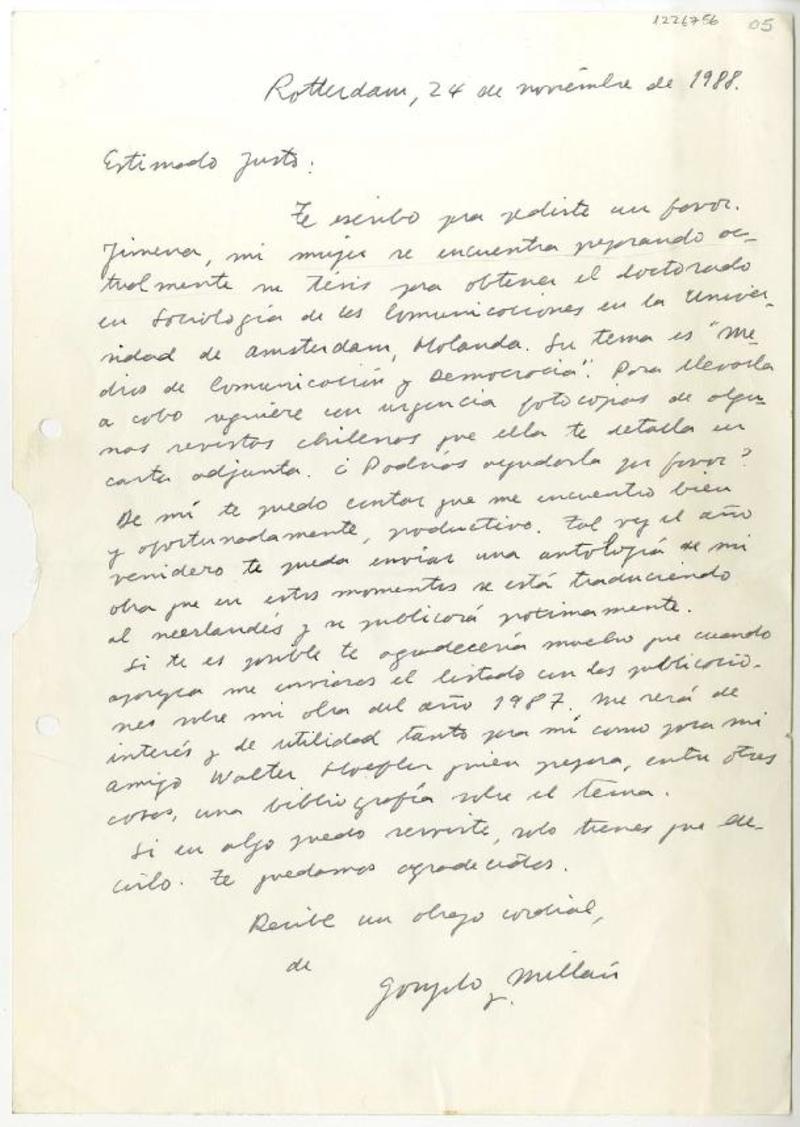 1226756 05
Rotterdam, 24 de noviembre de 1988.
Estimado Justo:
Te escribo para pedirte un favor.
Jimena, mi mujer se encuentra preparando ac-
tualmente su tésis para obtener el doctorado
en Sociología de las Comunicaciones en la Univer-
sidad de Amsterdam, Holanda. Su tema es "Me-
dios de Comunicación y Democracia". Para llevarla
a cabo requiere con urgencia fotocopias de algu-
nas revistas chilenas que ella te detalla en
carta adjunta. ¿Podrías ayudarla por favor?
De mí te puedo contar que me encuentro bien
y afortunadamente, productivo. Tal vez el año
venidero te pueda enviar una antología de mi
obra que en estos momentos se está traduciendo
al neerlandés y se publicará próximamente.
Si te es posible te agradecería mucho que cuando
aparezca me enviaras el listado con las publicacio-
nes sobre mi obra del año 1987. Me será de
interés y de utilidad tanto para mí como para mi
amigo Walter Hoefler quien prepara, entre otras
cosas, una bibliografía sobre el tema.
Si en algo puedo servirte, solo tienes que de-
cirlo. Te quedamos agradecidos.
Recibe un abrazo cordial,
de
Gonzalo Millán